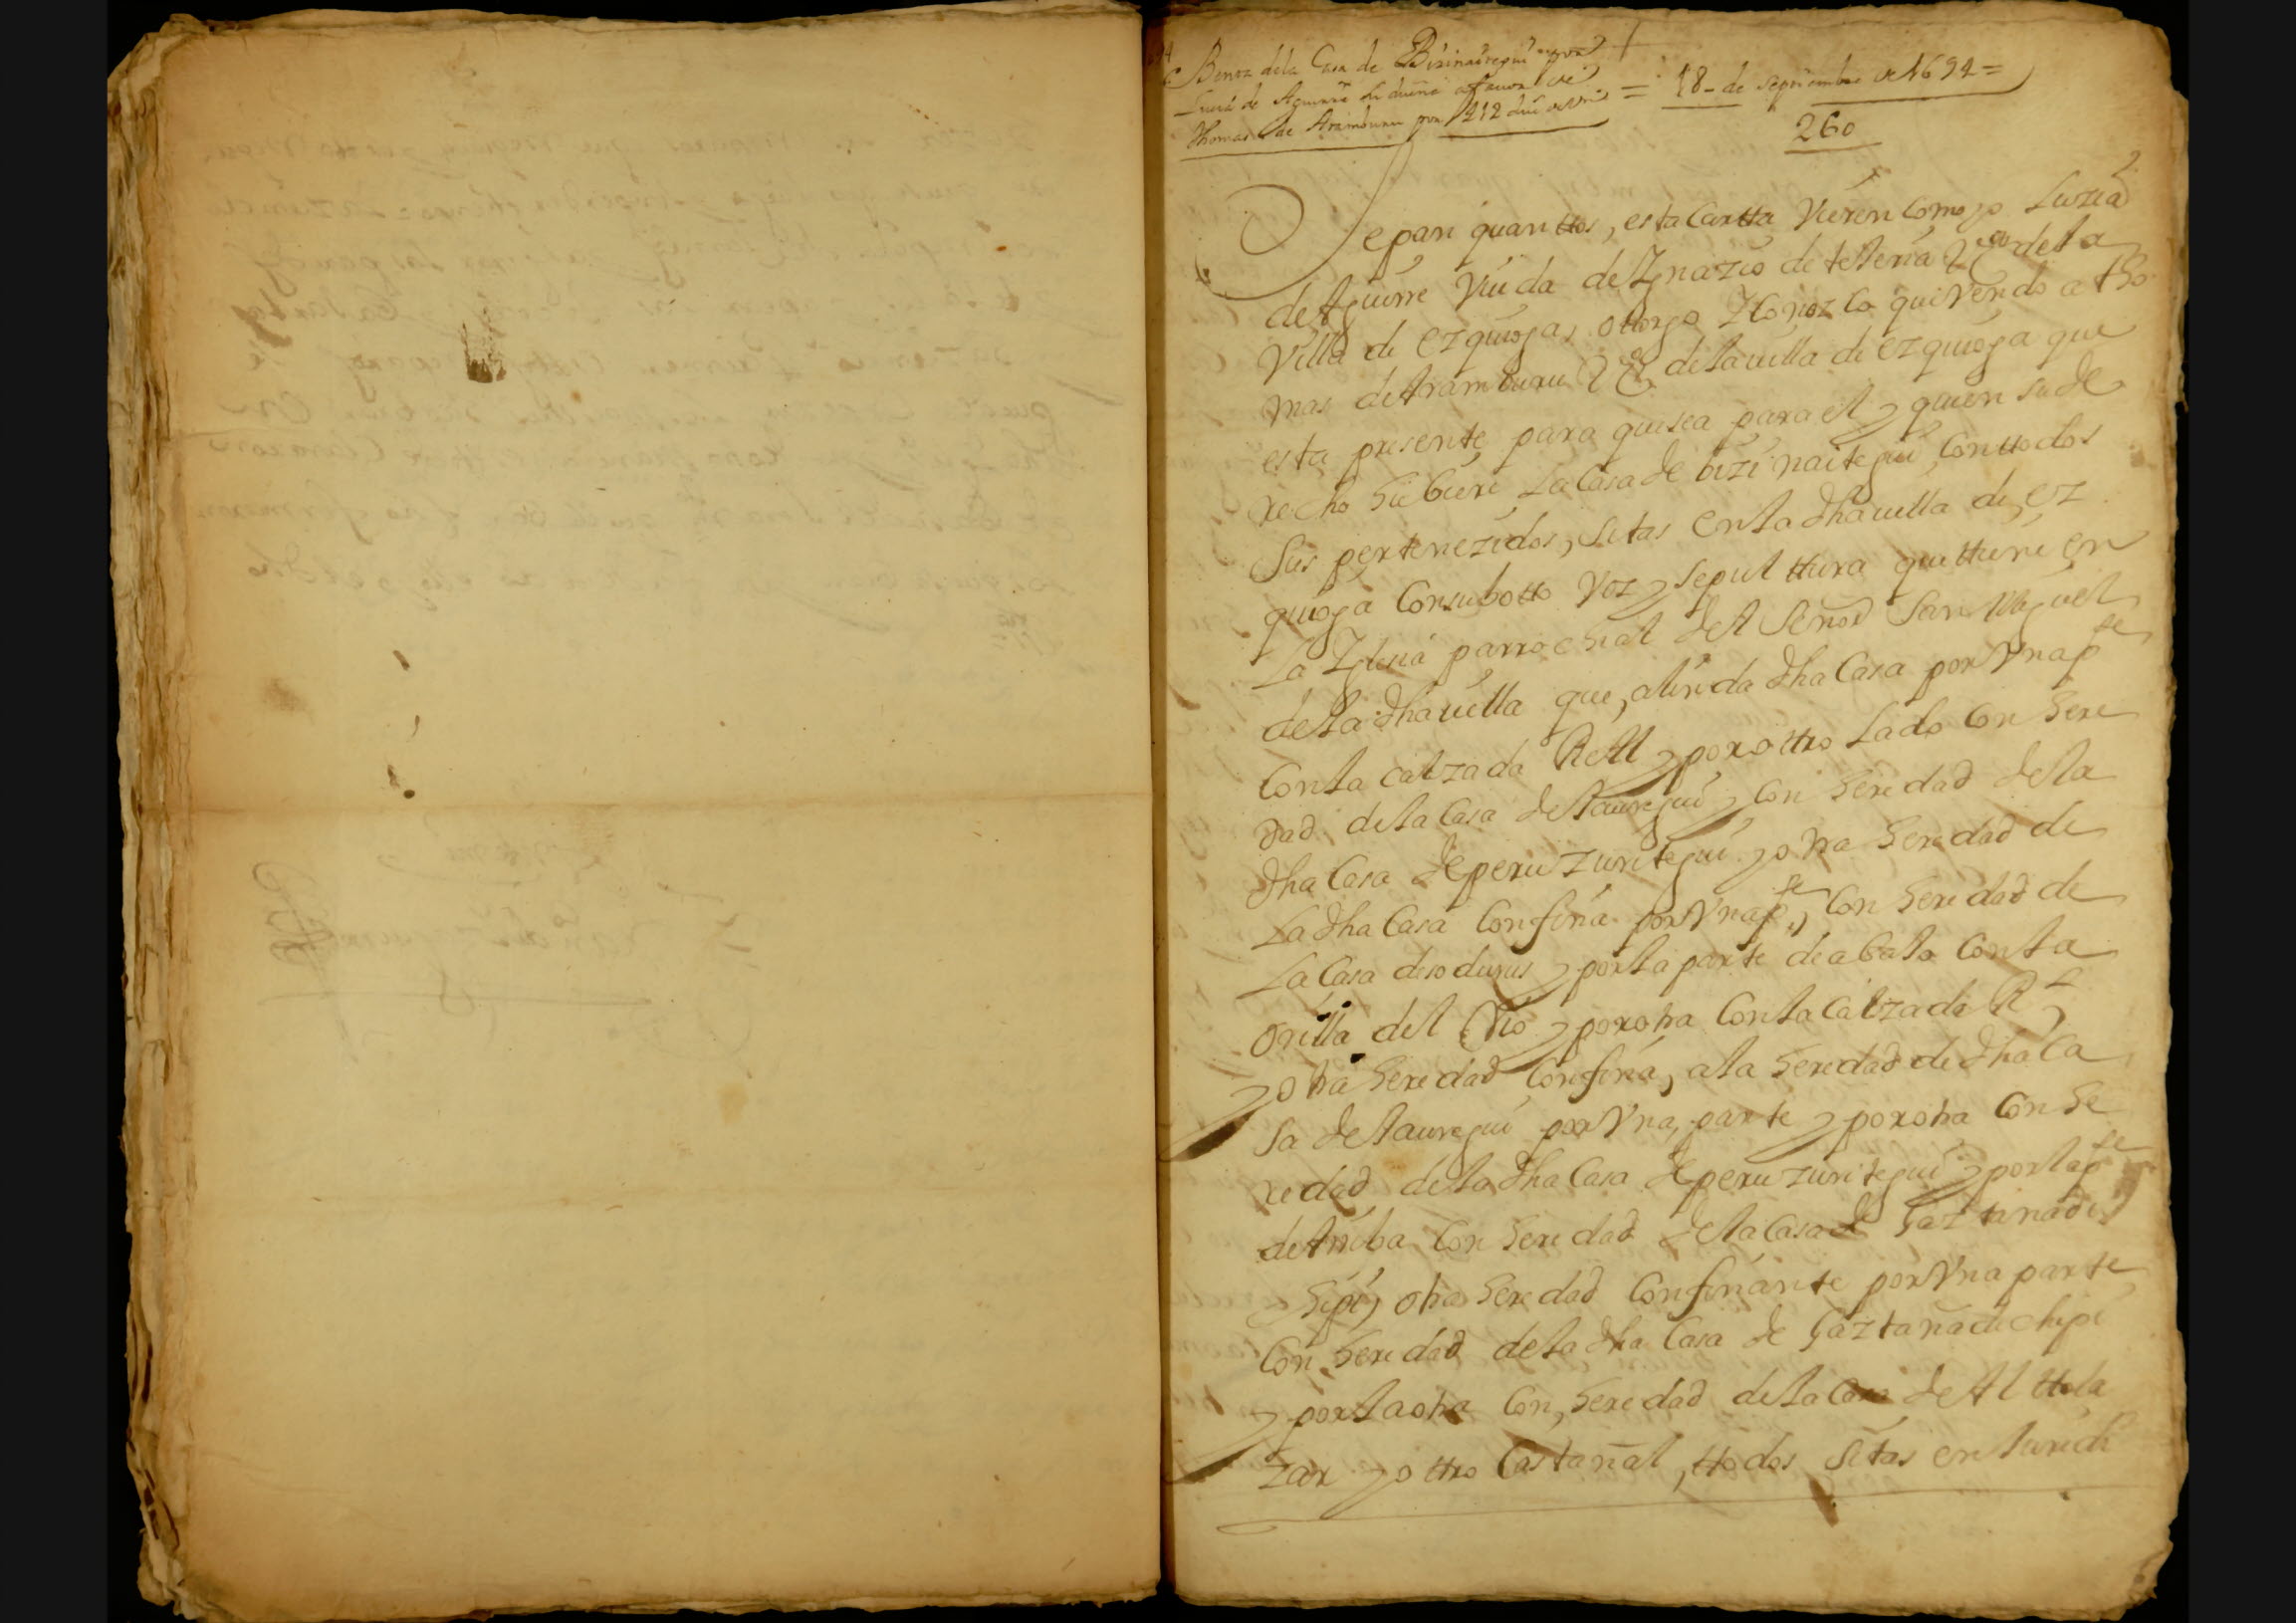 Benta dela Casa de Bizinaitegui por
Luzia de Aguirre su dueña a fauor de
Thomas de Aramburu por 212 du.s de v.on = 18 de septiembre de 1694 =
260
Sepan quanttos, esta Cartta Vieren Como yo Luzia
de Aguirre Viuda de Ygnazio de telleria Vª de la
Villa de ezquioga, ottorgo Y Conozco que Vendo a tho
mas de Aramburu Vº de la uilla de ezquioga que
esta presente para que sea para el y quien su de
recho hubiere La Casa de bizinaitegui, Con ttodos
Sus pertenezidos, Sitas en la dha uilla de ez
quioga Con su botto Voz y sepulttura que ttiene en
La Yglesia parrochial del Señor San Miguel
de la dha uilla que, alinda dha Casa por Vna pte
Con la calzada Rell y por ottro Lado Con here
dad de la Casa de Jauregui y Con heredad de la
dha Casa de peru zuritegui y otra heredad de
La dha Casa Confina por Vna pte, Con heredad de
La Casa de sodurus y por la parte de abaxo Con la
orilla del Rio y por otra Con la Calzada Rl
y otra heredad Confina, a la heredad de dha Ca
sa de Jauregui por Vna, parte y por otra Con he
redad de la dha Casa de peru zuritegui y por la pte
de Arriba Con heredad de la Casa de Gaztañadi
chipi, otra heredad Confinante por Vna parte
Con heredad de la dha Casa de Gaztañadichipi
y por la otra Con, heredad de la Casa de Alttola
zar y ottro Castañal, ttodos Sitas en Juridi